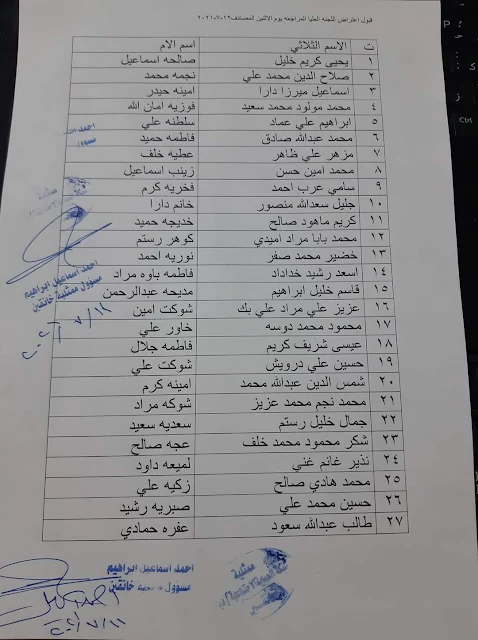 قبول اعتراض اللجنه العليا المراجعه يوم الاثنين المصادف ١٢-٧-٢٠٢١
ت الاسم الثلاثي اسم الام
١ يحيى كريم خليل صالحه اسماعيل
٢ صلاح الدين محمد علي نجمه محمد
٣ اسماعيل ميرزا دارا امينه حيدر
٤ محمد مولود محمد سعيد فوزيه امان الله
٥ ابراهيم علي عماد سلطنه علي
٦ محمد عبدالله صادق فاطمه حميد
٧ مزهر علي ظاهر عطيه خلف
٨ محمد امين حسن زينب اسماعيل
٩ سامي عرب احمد فخريه كرم
١٠ جليل سعدالله منصور خانم دارا
١١ كريم ماهود صالح خديجه حميد
١٢ محمد بابا مراد اميدي كوهر رستم
١٣ خضير محمد صفر نوريه احمد
١٤ اسعد رشيد خداداد فاطمه باوه مراد
١٥ قاسم خليل ابراهيم مديحه عبدالرحمن
١٦ عزيز علي مراد علي بك شوكت امين
١٧ محمود محمد دوسه خاور علي
١٨ عيسى شريف كريم فاطمه جلال
١٩ حسين علي درويش شوكت علي
٢٠ شمس الدين عبدالله محمد امينه كرم
٢١ محمد نجم محمد عزيز شوكه مراد
٢٢ جمال خليل رستم سعديه سعيد
٢٣ شكر محمود محمد خلف عجه صالح
٢٤ نذير غانم غني لميعه داود
٢٥ محمد هادي صالح زكيه علي
٢٦ حسين محمد علي صبريه رشيد
٢٧ طالب عبدالله سعود عفره حمادي
احمد اسماعيل ابراهيم
مسؤول ممثلية خانقين
احمد اسماعيل ابراهيم
مسؤول ممثلية خانقين
ممثلية
Ctrl